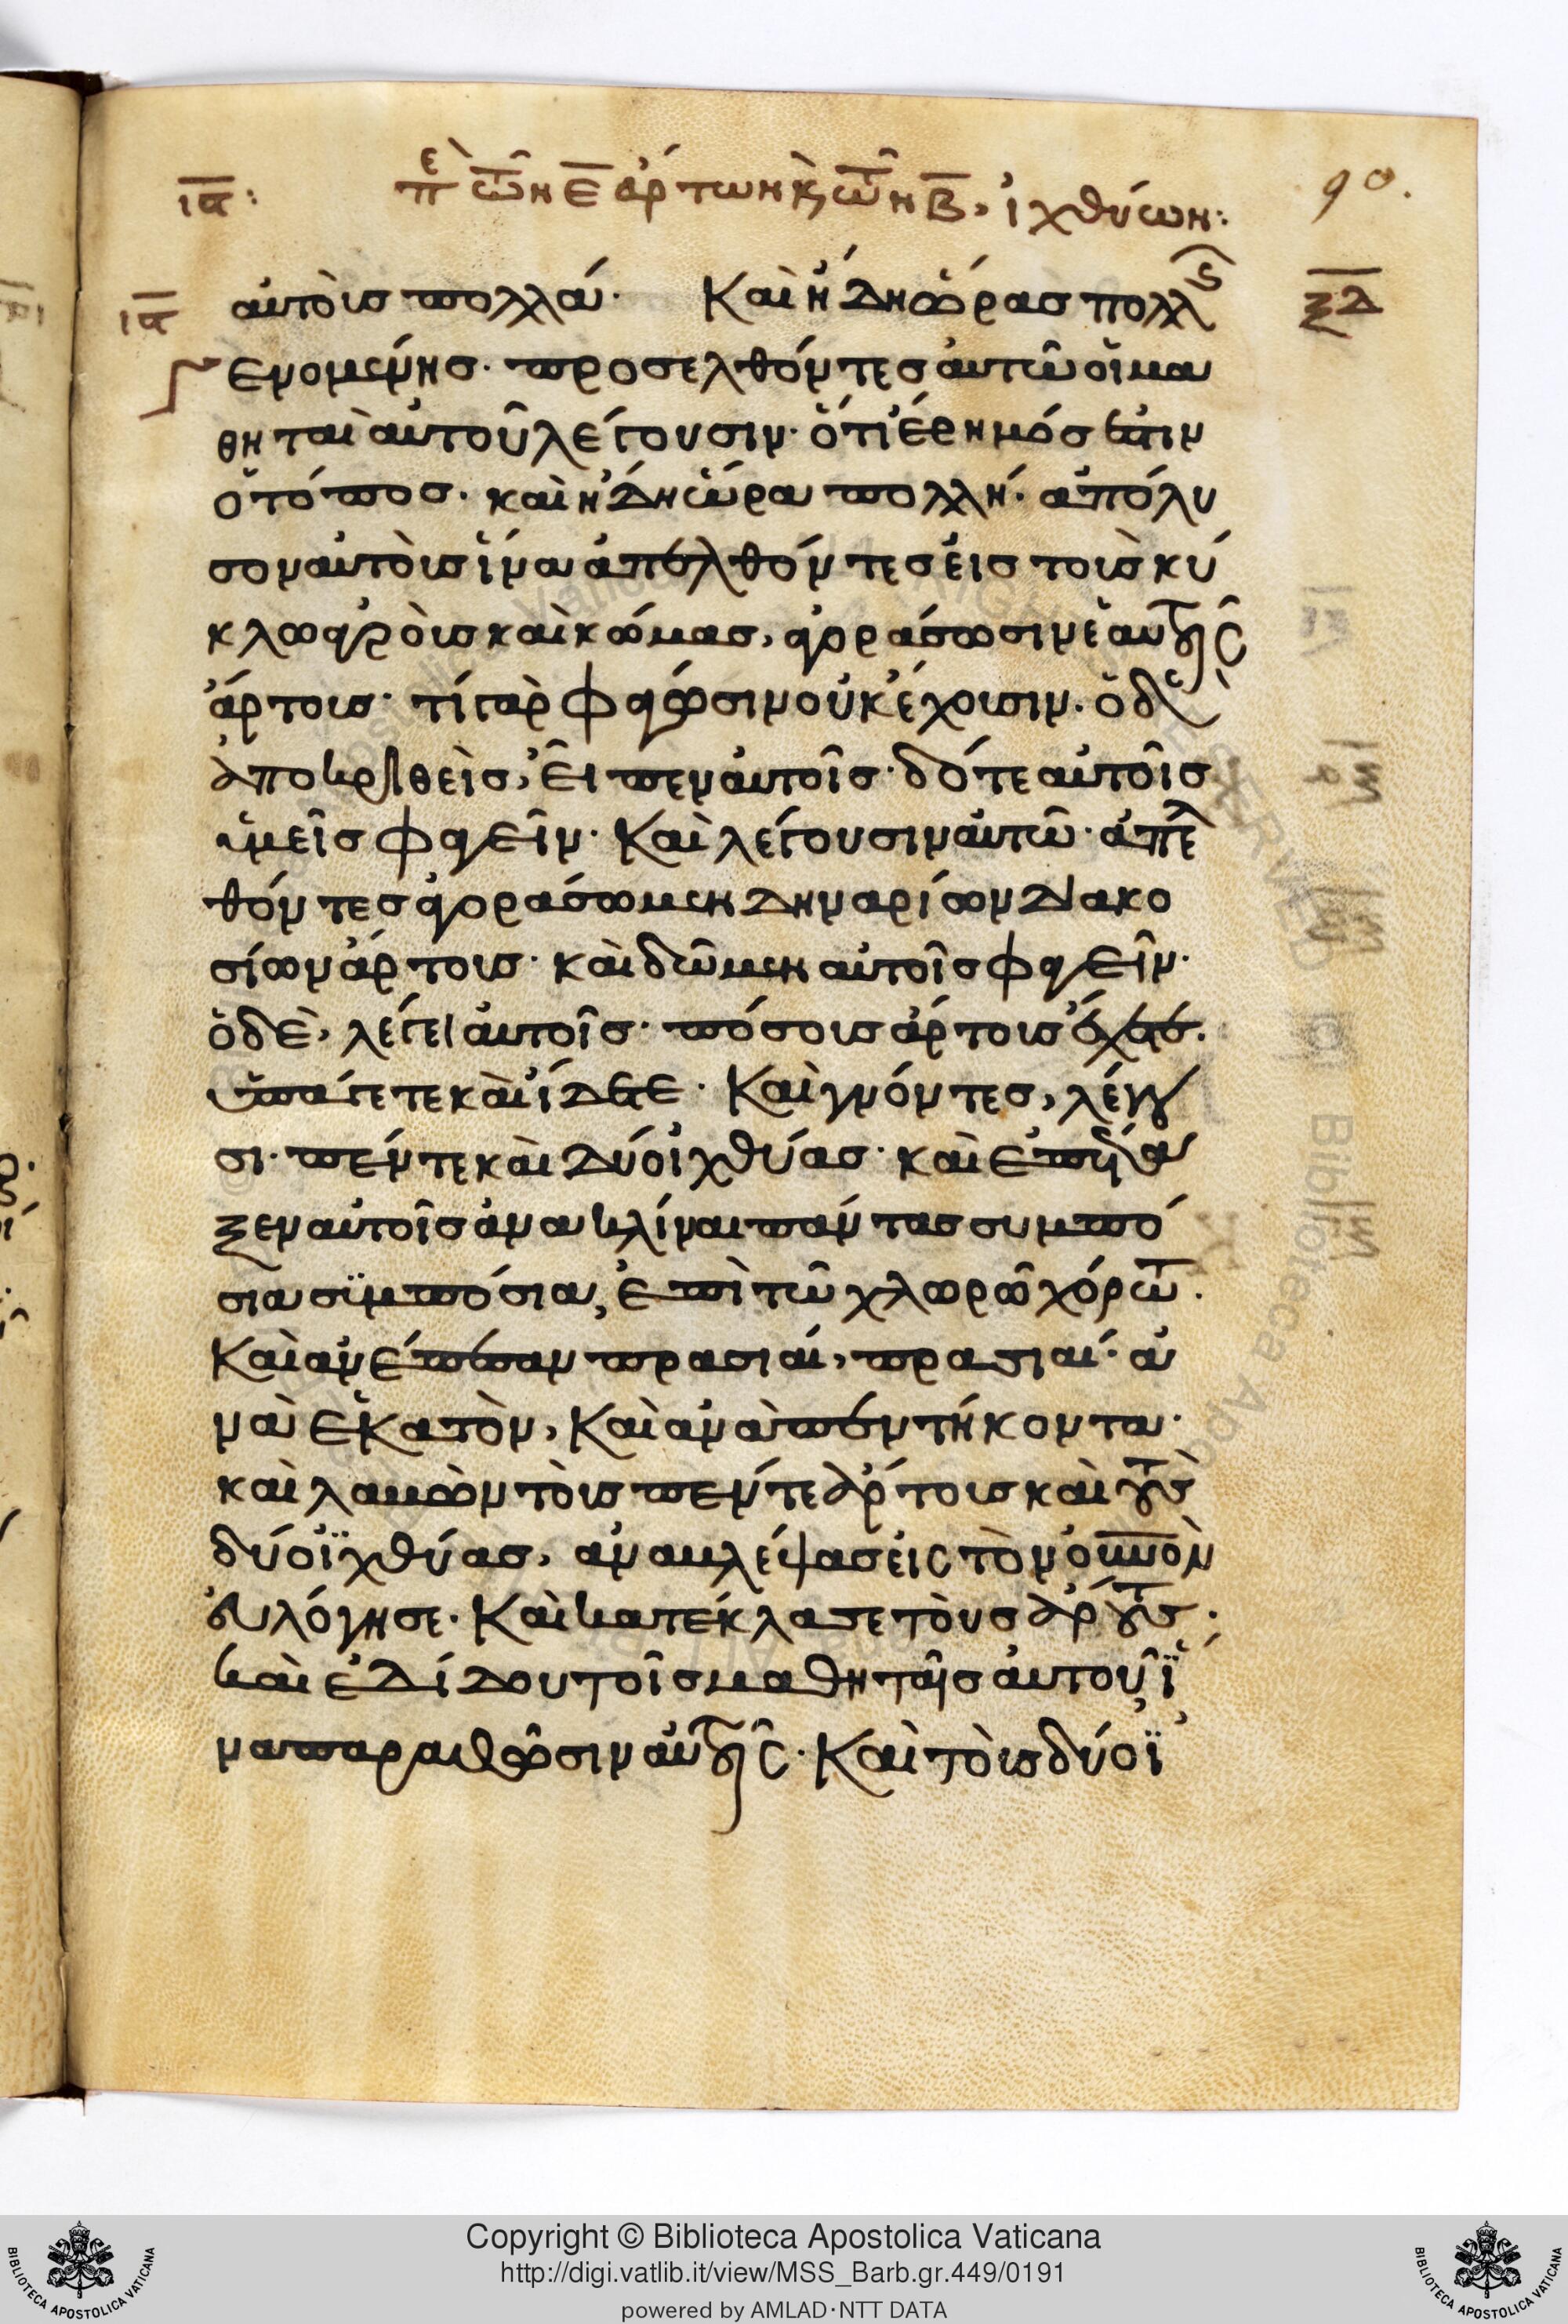 ια: πε τῶν ε ἄρτων κ τῶν β, ἰχθύων: 90.
ια αὐτοὺς πολλά. Καὶ ἤδη ὥρας πολλῆς ξδ
Γενομένης. προσελθόντες αὐτῶ οἱ μα
θηταὶ αὐτοῦ λέγουσιν. ὅτι ἔρημός ἐστιν
ὁ τόπος. καὶ ἤδη ὥρα πολλή. ἀπόλυ
σον αὐτοὺς ἵνα ἀπελθόντες εἰς τοὺς κύ
κλω ἀγροὺς καὶ κώμας, ἀγοράσωσιν ἑαυτοῖς
ἄρτους. τί γὰρ φάγωσιν οὐκ ἔχουσιν. ὁ δὲ
ἀποκριθεὶς, εἶπεν αὐτοῖς. δότε αὐτοῖς
ὑμεῖς φαγεῖν. Καὶ λέγουσιν αὐτῶ. ἀπελ
θόντες ἀγοράσωμεν δηναρίων διακο
σίων ἄρτους. καὶ δῶμεν αὐτοῖς φαγεῖν.
ὁ δὲ, λέγει αὐτοῖς. πόσους ἄρτους ἔχετε.
ὑπάγετε καὶ ἴδετε. Καὶ γνόντες, λέγου
σι. πέντε καὶ δύο ἰχθύας. καὶ ἐπέτα
ξεν αὐτοῖς ἀνακλίναι πάντας συμπό
σια συμπόσια, ἐπὶ τῶ χλωρῶ χόρτω.
Καὶ ἀνέπεσαν πρασιαί, πρασιαί. ἀ
νὰ ἑκατὸν, Καὶ ἀνὰ πεντήκοντα.
καὶ λαβὼν τοὺς πέντε ἄρτους καὶ τοὺς
δύο ἰχθύας, ἀναβλέψας εἰς τὸν οὐνὸν
εὐλόγησε. Καὶ κατέκλασε τοὺς ἄρτους.
καὶ ἐδίδου τοῖς μαθηταῖς αὐτοῦ ἵ
να παραθῶσιν αὐτοῖς. Καὶ τοὺς δύο ἰ
Copyright © Biblioteca Apostolica Vaticana
http://digi.vatlib.it/view/MSS_Barb.gr.449/0191
powered by AMLAD·NTT DATA
BIBLIOTECA APOSTOLICA VATICANA
BIBLIOTECA APOSTOLICA VATICANA